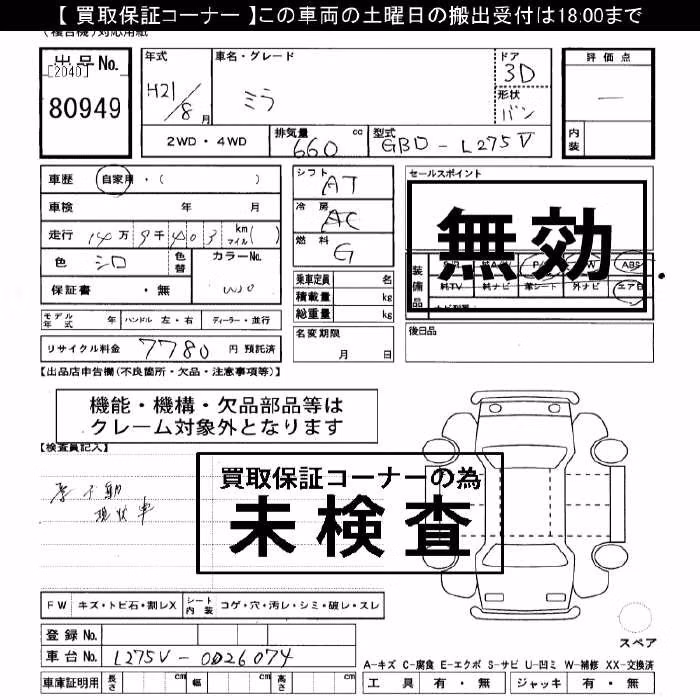 【 買取保証コーナー 】この車両の土曜日の搬出受付は18:00まで
(複合機)対応用紙
出品No.
[2040]
80949
年式
H21/8月
車名・グレード
ミラ
ドア
3D
形状
バン
評価点
―
内装
2WD・4WD
排気量
660 cc
型式
GBD-L275V
車歴 自家用・( )
車検 年 月
走行 14万9千403 km マイル( )
色 シロ
色替
カラーNo.
W10
保証書 ・無
シフト
AT
冷房
AC
燃料
G
乗車定員 名
積載量 kg
総重量 kg
セールスポイント
無効
装備品
ABS
純TV 純ナビ 革シート 外ナビ エアB
モデル年式 年 ハンドル 左・右 ディーラー・並行
リサイクル料金 7780 円 預託済
名変期限
月 日
後日品
【出品店申告欄(不良箇所・欠品・注意事項等)】
機能・機構・欠品部品等は
クレーム対象外となります
【検査員記入】
不動
現状車
買取保証コーナーの為
未検査
FW キズ・トビ石・割レX
シート内装 コゲ・穴・汚レ・シミ・破レ・スレ
登録No.
車台No. L275V-0026074
スペア
A-キズ C-腐食 E-エクボ S-サビ U-凹ミ W-補修 XX-交換済
車庫証明用 長さ cm 幅 cm 高さ cm
工具 有・無 ジャッキ 有・無